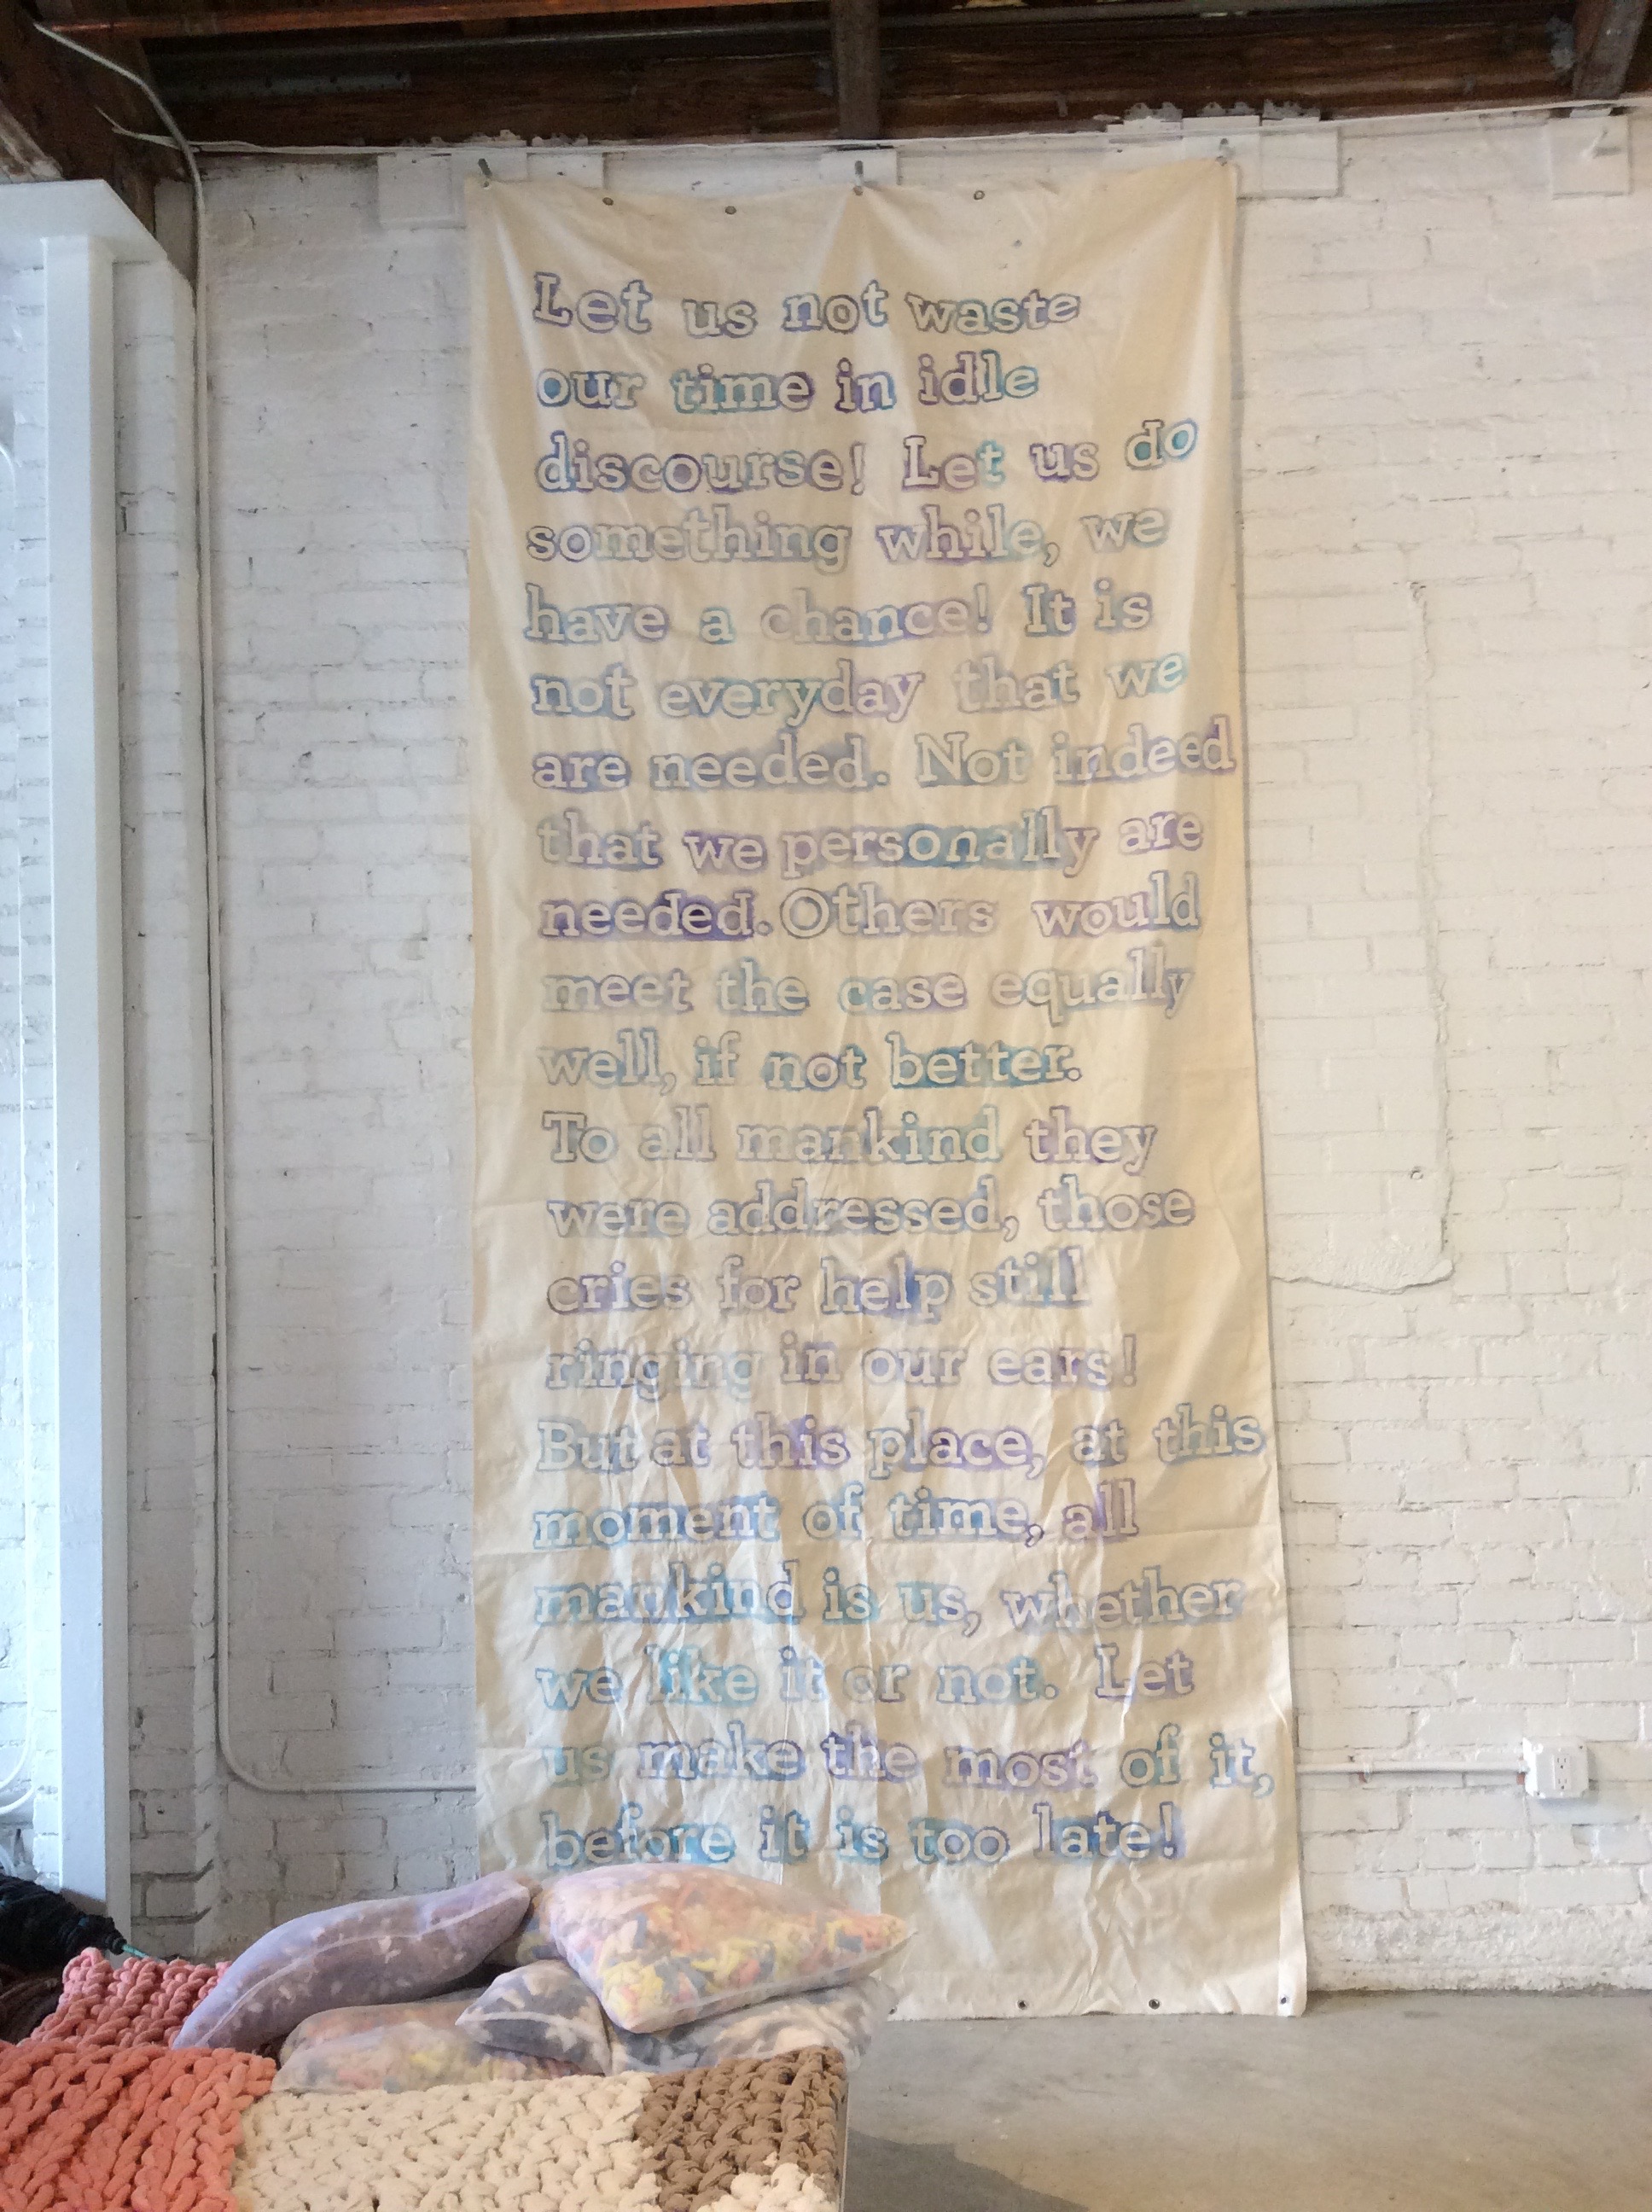 Let us not waste
our time in idle
discourse! Let us do
something while, we
have a chance! It is
not everyday that we
are needed. Not indeed
that we personally are
needed. Others would
meet the case equally
well, if not better.
To all mankind they
were addressed, those
cries for help still
ringing in our ears!
But at this place, at this
moment of time, all
mankind is us, whether
we like it or not. Let
us make the most of it,
before it is too late!